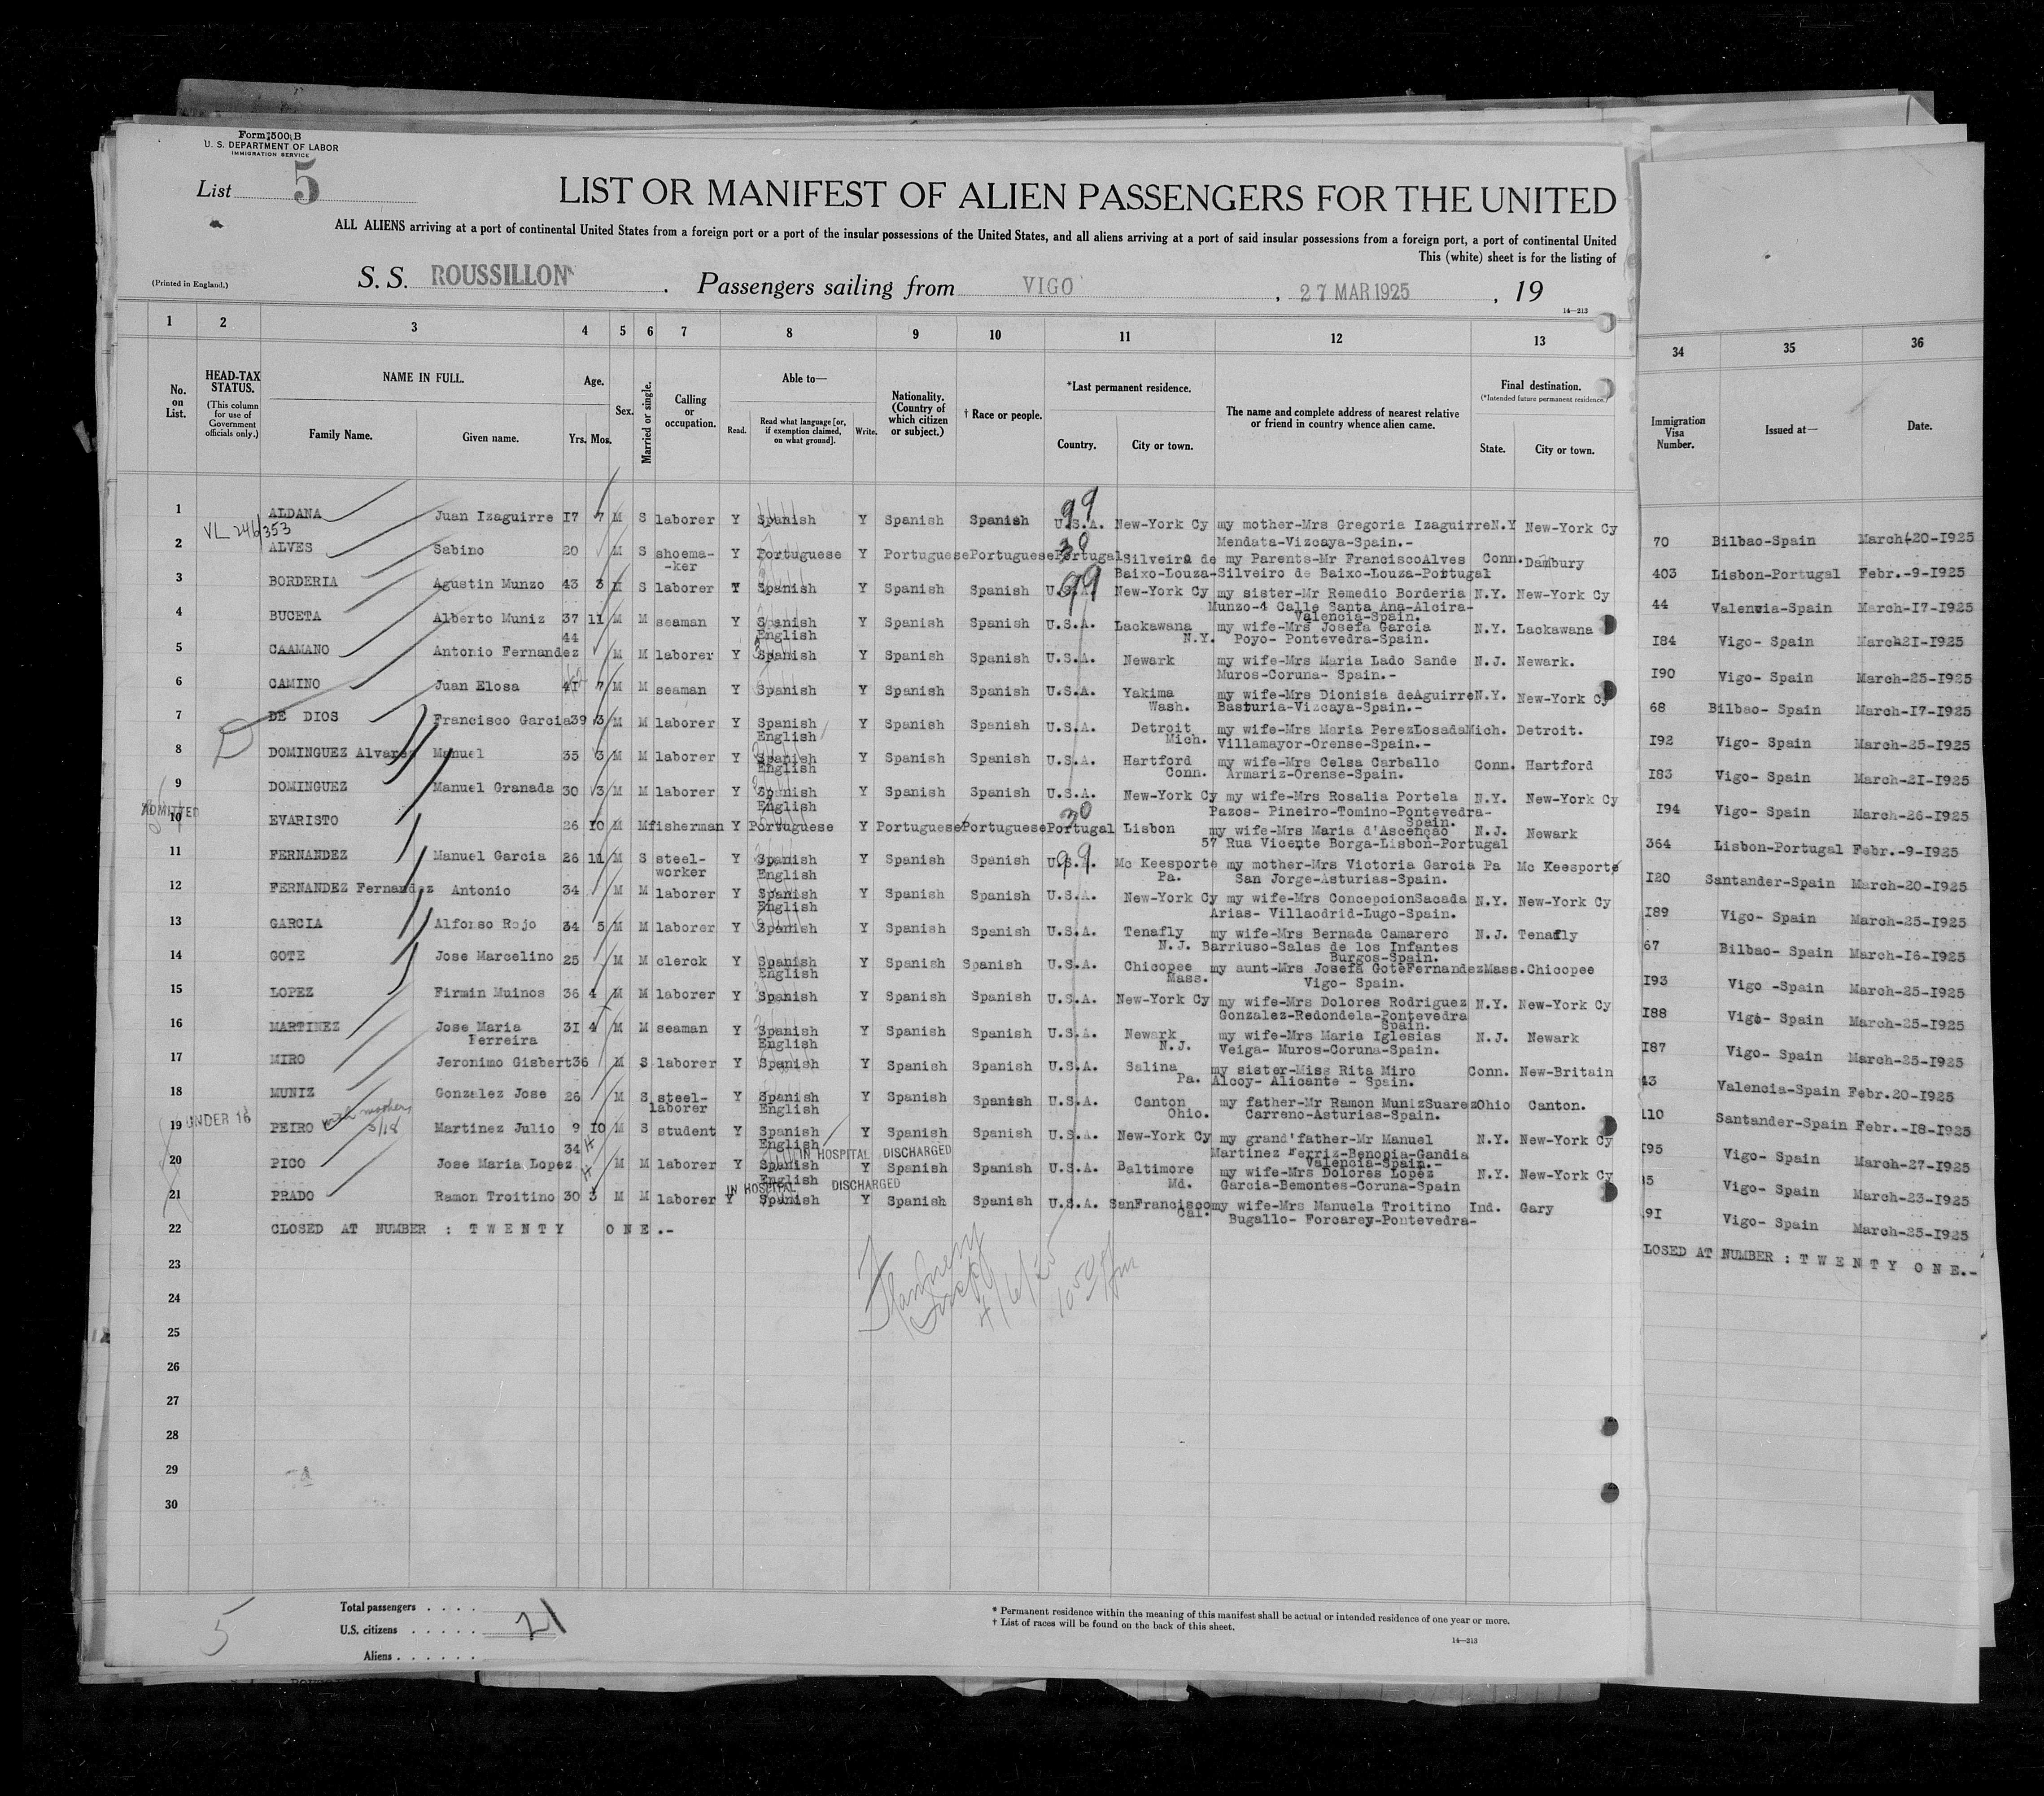 Form 500 B
U. S. DEPARTMENT OF LABOR
IMMIGRATION SERVICE
List 5
LIST OR MANIFEST OF ALIEN PASSENGERS FOR THE UNITED
ALL ALIENS arriving at a port of continental United States from a foreign port or a port of the insular possessions of the United States, and all aliens arriving at a port of said insular possessions from a foreign port, a port of continental United
This (white) sheet is for the listing of
(Printed in England.)
S. S. ROUSSILLON . Passengers sailing from VIGO , 27 MAR 1925 , 19
14—213
1 2 3 4 5 6 7 8 9 10 11 12 13 34 35 36
No. on List.
HEAD-TAX STATUS.
(This column for use of Government officials only.)
NAME IN FULL.
Family Name. Given name.
Age.
Yrs. Mos.
Sex.
Married or single.
Calling or occupation.
Able to—
Read. Read what language [or, if exemption claimed, on what ground]. Write.
Nationality. (Country of which citizen or subject.)
† Race or people.
*Last permanent residence.
Country. City or town.
The name and complete address of nearest relative or friend in country whence alien came.
Final destination.
(*Intended future permanent residence.)
State. City or town.
Immigration Visa Number.
Issued at—
Date.
99
1 ALDANA Juan Izaguirre I7 7 M S laborer Y Spanish Y Spanish Spanish U.S.A. New-York Cy my mother-Mrs Gregoria Izaguirre N.Y New-York Cy 70 Bilbao-Spain March-20-I925
Mendata-Vizcaya-Spain.-
VL 246/353
30
2 ALVES Sabino 20 M S shoema- Y Portuguese Y Portuguese Portuguese Portugal Silveira de my Parents-Mr FranciscoAlves Conn. Dambury 403 Lisbon-Portugal Febr.-9-I925
-ker Baixo-Louza-Silveiro de Baixo-Louza-Portugal
99
3 BORDERIA Agustin Munzo 43 3 M S laborer Y Spanish Y Spanish Spanish U.S.A. New-York Cy my sister-Mr Remedio Borderia N.Y. New-York Cy 44 Valencia-Spain March-I7-I925
Munzo-4 Calle Santa Ana-Alcira-
Valencia-Spain.
4 BUCETA Alberto Muniz 37 11 M M seaman Y Spanish Y Spanish Spanish U.S.A. Lackawana my wife-Mrs Josefa Garcia N.Y. Lackawana I84 Vigo- Spain March2I-I925
English N.Y. Poyo- Pontevedra-Spain.
5 CAAMANO Antonio Fernandez 44 M M laborer Y Spanish Y Spanish Spanish U.S.A. Newark my wife-Mrs Maria Lado Sande N.J. Newark. I90 Vigo- Spain March-25-I925
Muros-Coruna- Spain.-
6 CAMINO Juan Elosa 4I 7 M M seaman Y Spanish Y Spanish Spanish U.S.A. Yakima my wife-Mrs Dionisia deAguirre N.Y. New-York Cy 68 Bilbao- Spain March-I7-I925
Wash. Basturia-Vizcaya-Spain.-
7 DE DIOS Francisco Garcia 39 3 M M laborer Y Spanish Y Spanish Spanish U.S.A. Detroit my wife-Mrs Maria PerezLosada Mich. Detroit. I92 Vigo- Spain March-25-I925
English Mich. Villamayor-Orense-Spain.-
8 DOMINGUEZ Alvarez Manuel 35 3 M M laborer Y Spanish Y Spanish Spanish U.S.A. Hartford my wife-Mrs Celsa Carballo Conn. Hartford I83 Vigo- Spain March-2I-I925
English Conn. Armariz-Orense-Spain.
9 DOMINGUEZ Manuel Granada 30 3 M M laborer Y Spanish Y Spanish Spanish U.S.A. New-York Cy my wife-Mrs Rosalia Portela N.Y. New-York Cy I94 Vigo- Spain March-26-I925
English Pazos- Pineiro-Tomino-Pontevedra-
Spain.
ADMITTED
30
10 EVARISTO 26 10 M M fisherman Y Portuguese Y Portuguese Portuguese Portugal Lisbon my wife-Mrs Maria d'Ascençao N.J. Newark 364 Lisbon-Portugal Febr.-9-I925
57 Rua Vicente Borga-Lisbon-Portugal
99
11 FERNANDEZ Manuel Garcia 26 11 M S steel- Y Spanish Y Spanish Spanish U.S.A. Mc Keesporte my mother-Mrs Victoria Garcia Pa Mc Keesporte I20 Santander-Spain March-20-I925
worker English Pa. San Jorge-Asturias-Spain.
12 FERNANDEZ Fernandez Antonio 34 M M laborer Y Spanish Y Spanish Spanish U.S.A. New-York Cy my wife-Mrs ConcepcionSacada N.Y. New-York Cy I89 Vigo- Spain March-25-I925
English Arias- Villaodrid-Lugo-Spain.
13 GARCIA Alfonso Rojo 34 5 M M laborer Y Spanish Y Spanish Spanish U.S.A. Tenafly my wife-Mrs Bernada Camarero N.J. Tenafly 67 Bilbao- Spain March-I6-I925
N.J. Barriuso-Salas de los Infantes
Burgos-Spain.
14 GOTE Jose Marcelino 25 M M clerck Y Spanish Y Spanish Spanish U.S.A. Chicopee my aunt-Mrs Josefa GoteFernandez Mass. Chicopee I93 Vigo -Spain March-25-I925
English Mass. Vigo- Spain.
15 LOPEZ Firmin Muinos 36 4 M M laborer Y Spanish Y Spanish Spanish U.S.A. New-York Cy my wife-Mrs Dolores Rodriguez N.Y. New-York Cy I88 Vigo- Spain March-25-I925
Gonzalez-Redondela-Pontevedra
Spain.
16 MARTINEZ Jose Maria 3I 4 M M seaman Y Spanish Y Spanish Spanish U.S.A. Newark my wife-Mrs Maria Iglesias N.J. Newark I87 Vigo- Spain March-25-I925
Ferreira English N.J. Veiga- Muros-Coruna-Spain.
17 MIRO Jeronimo Gisbert 36 M S laborer Y Spanish Y Spanish Spanish U.S.A. Salina my sister-Miss Rita Miro Conn. New-Britain 43 Valencia-Spain Febr.20-I925
Pa. Alcoy- Alicante - Spain.
18 MUNIZ Gonzalez Jose 26 M S steel- Y Spanish Y Spanish Spanish U.S.A. Canton my father-Mr Ramon MunizSuarez Ohio Canton. 110 Santander-Spain Febr.-I8-I925
laborer English Ohio. Carreno-Asturias-Spain.
UNDER 16 with mother 5/18
19 PEIRO Martinez Julio 9 10 M S student Y Spanish Y Spanish Spanish U.S.A. New-York Cy my grand'father-Mr Manuel N.Y. New-York Cy I95 Vigo- Spain March-27-I925
English Martinez Ferriz-Benopia-Gandia
Valencia-Spain.-
IN HOSPITAL DISCHARGED
20 PICO Jose Maria Lopez 34 M M laborer Y Spanish Y Spanish Spanish U.S.A. Baltimore my wife-Mrs Dolores Lopez N.Y. New-York Cy 5 Vigo- Spain March-23-I925
English Md. Garcia-Bemontes-Coruna-Spain
IN HOSPITAL DISCHARGED
21 PRADO Ramon Troitino 30 3 M M laborer Y Spanish Y Spanish Spanish U.S.A. SanFrancisco my wife-Mrs Manuela Troitino Ind. Gary 9I Vigo- Spain March-25-I925
Cal. Bugallo- Forcarey-Pontevedra-
22 CLOSED AT NUMBER : T W E N T Y O N E .- LOSED AT NUMBER : T W E N T Y O N E.-
23
24
4/6/25
25
26
27
28
29
30
5
Total passengers . . . .
U.S. citizens . . . . . 21
Aliens . . . . . .
* Permanent residence within the meaning of this manifest shall be actual or intended residence of one year or more.
† List of races will be found on the back of this sheet.
14—213